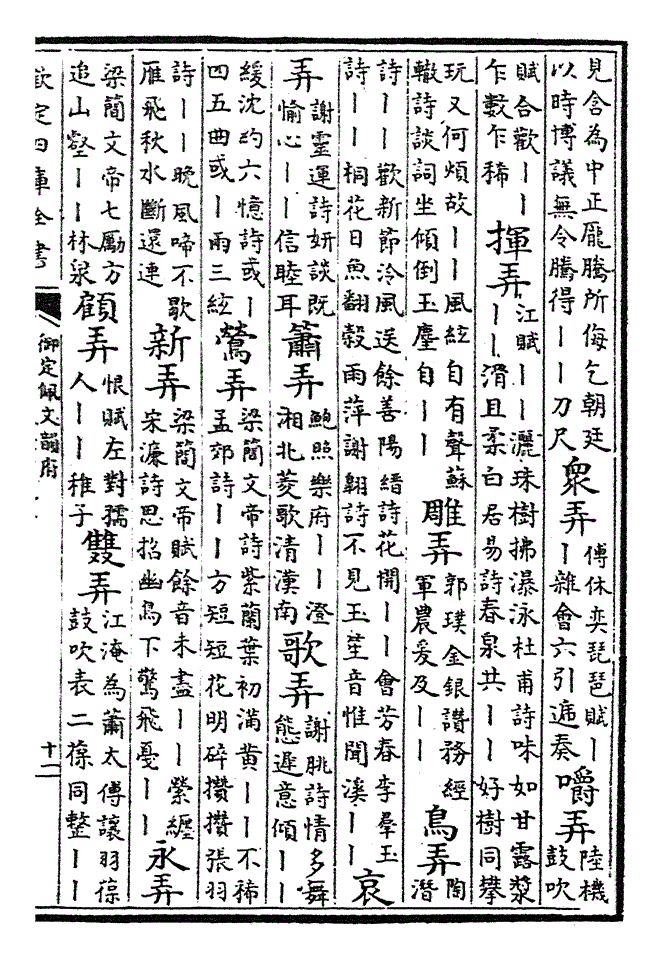 見含為中正龐騰所侮乞朝廷
以時博議無令騰得丨丨刀尺
眾弄
傅休奕琵琶賦丨
丨雜會六引遞奏
嚼弄
陸機
鼓吹
賦合歡丨丨
乍數乍稀
揮弄
江賦丨丨灑珠樹拂瀑泳杜甫詩味如甘露漿
丨丨滑且柔白居易詩春泉共丨丨好樹同攀
玩又何煩故丨丨風絃自有聲蘇
轍詩談詞坐傾倒玉麈自丨丨
雕弄
郭璞金銀讚務經
軍農爰及丨丨
鳥弄
陶
潛
詩丨丨歡新節泠風送餘善陽縉詩花開丨丨會芳春李羣玉
詩丨丨桐花日魚翻榖雨萍謝翱詩不見玉笙音惟聞溪丨丨
哀
弄
謝靈運詩妍談既
愉心丨丨信睦耳
簫弄
鮑照樂府丨丨澄
湘北菱歌清漢南
歌弄
謝朓詩情多舞
態遲意傾丨丨
緩沈約六憶詩或丨
四五曲或丨兩三絃
鶯弄
梁簡文帝詩紫蘭葉初滿黄丨丨不稀
孟郊詩丨丨方短短花明碎攢攢張羽
詩丨丨晚風啼不歇
雁飛秋水斷還連
新弄
梁簡文帝賦餘音未盡丨丨縈纏
宋濂詩思招幽鳥下驚飛憂丨丨
永弄
梁簡文帝七勵方
追山壑丨丨林泉
顧弄
恨賦左對孺
人丨丨稚子
雙弄
江淹為蕭太傅讓羽葆
鼓吹表二葆同整丨丨
欽定四庫全書
御定佩文韻府
十二